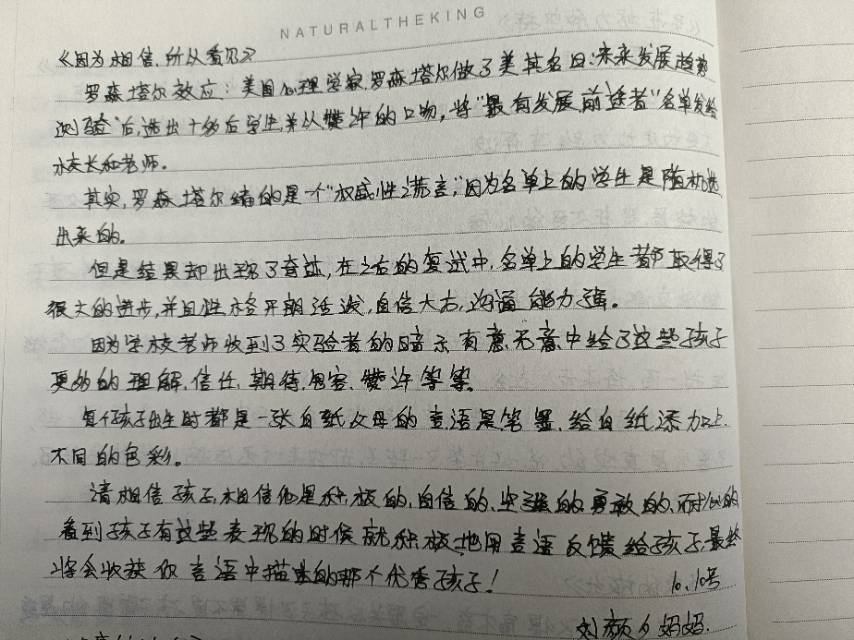 NATURALTHEKING
《因为相信,所以看见》
罗森塔尔效应:美国心理学家罗森塔尔做了美其名曰:"未来发展趋势
测验"后,选出十多名学生,并以赞许的口吻,将"最有发展前途者"名单发给
校长和老师。
其实,罗森塔尔编的是一个"权威性谎言",因为名单上的学生是随机选
出来的。
但是结果却出现了奇迹,在之后的复试中,名单上的学生都取得了
很大的进步,并且性格开朗活泼,自信大方,沟通能力强。
因为学校老师收到了实验者的暗示,有意无意中给了这些孩子
更多的理解、信任、期待、包容、赞许等等。
每个孩子出生时都是一张白纸,父母的言语是笔墨,给白纸添加上
不同的色彩。
请相信孩子,相信他是积极的、自信的、坚强的、勇敢的,耐心的
看到孩子有这些表现的时候就积极地用言语反馈给孩子,最终
将会收获你言语中描述的那个优秀孩子!
10.10号
刘颜夕妈妈.